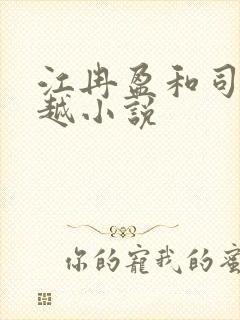 江冉盈和司
越小説
你的寵我的蜜